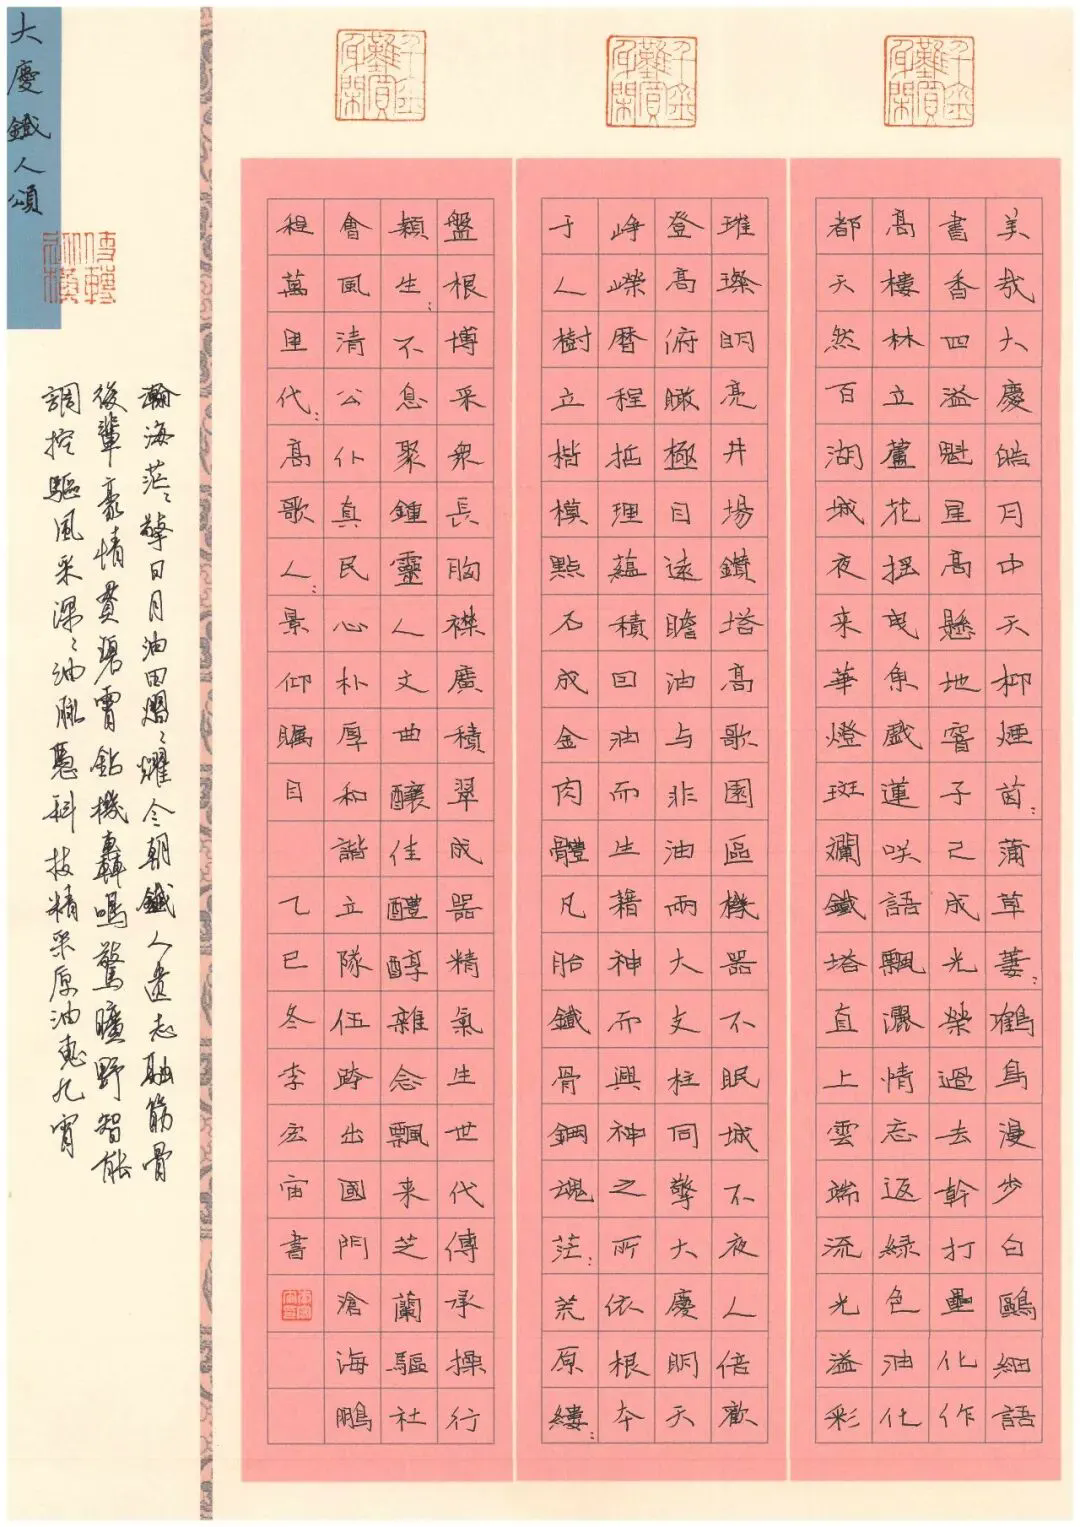 美哉大慶皓月中天柳煙茵：蒲草萋：鶴鳥漫步白鷗細語
書香四溢魁星高懸地窨子已成光榮過去幹打壘化作
高樓林立蘆花搖曳魚戲蓮唉語飄瀑情忘返綠色油化
都天然百湖城夜来華燈斑斕鐵塔直上雲端流光溢彩
璀璨明亮井場鑽塔高歌園區機器不眠城不夜人倍歡
登高俯瞰極目遠瞻油与非油兩大支柱同擎大慶明天
崢嶸曆程抵理蘊積回油而生藉神而興神之所依根本
于人樹立楷模點石成金肉體凡胎鐵骨鋼魂茫：荒原縷：
盤根博采衆長胸襟廣積翠成器精氣生世代傳承操行
穎生：不息聚鍾靈人文曲釀佳醴醇雜念飄来芝蘭驅社
會風清公仆真民心朴厚和諧立隊伍跨出國門滄海鵬
程萬里代：高歌人：景仰矚目 乙巳冬李宏宙書
大慶鐵人頌
瀚海茫：擎日月油田熠：耀今朝鐵人遺志融筋骨
後輩豪情貫碧霄鉆機轟鳴驚曠野智能
調控驅風采深：油脉憑科技精采原油惠九霄